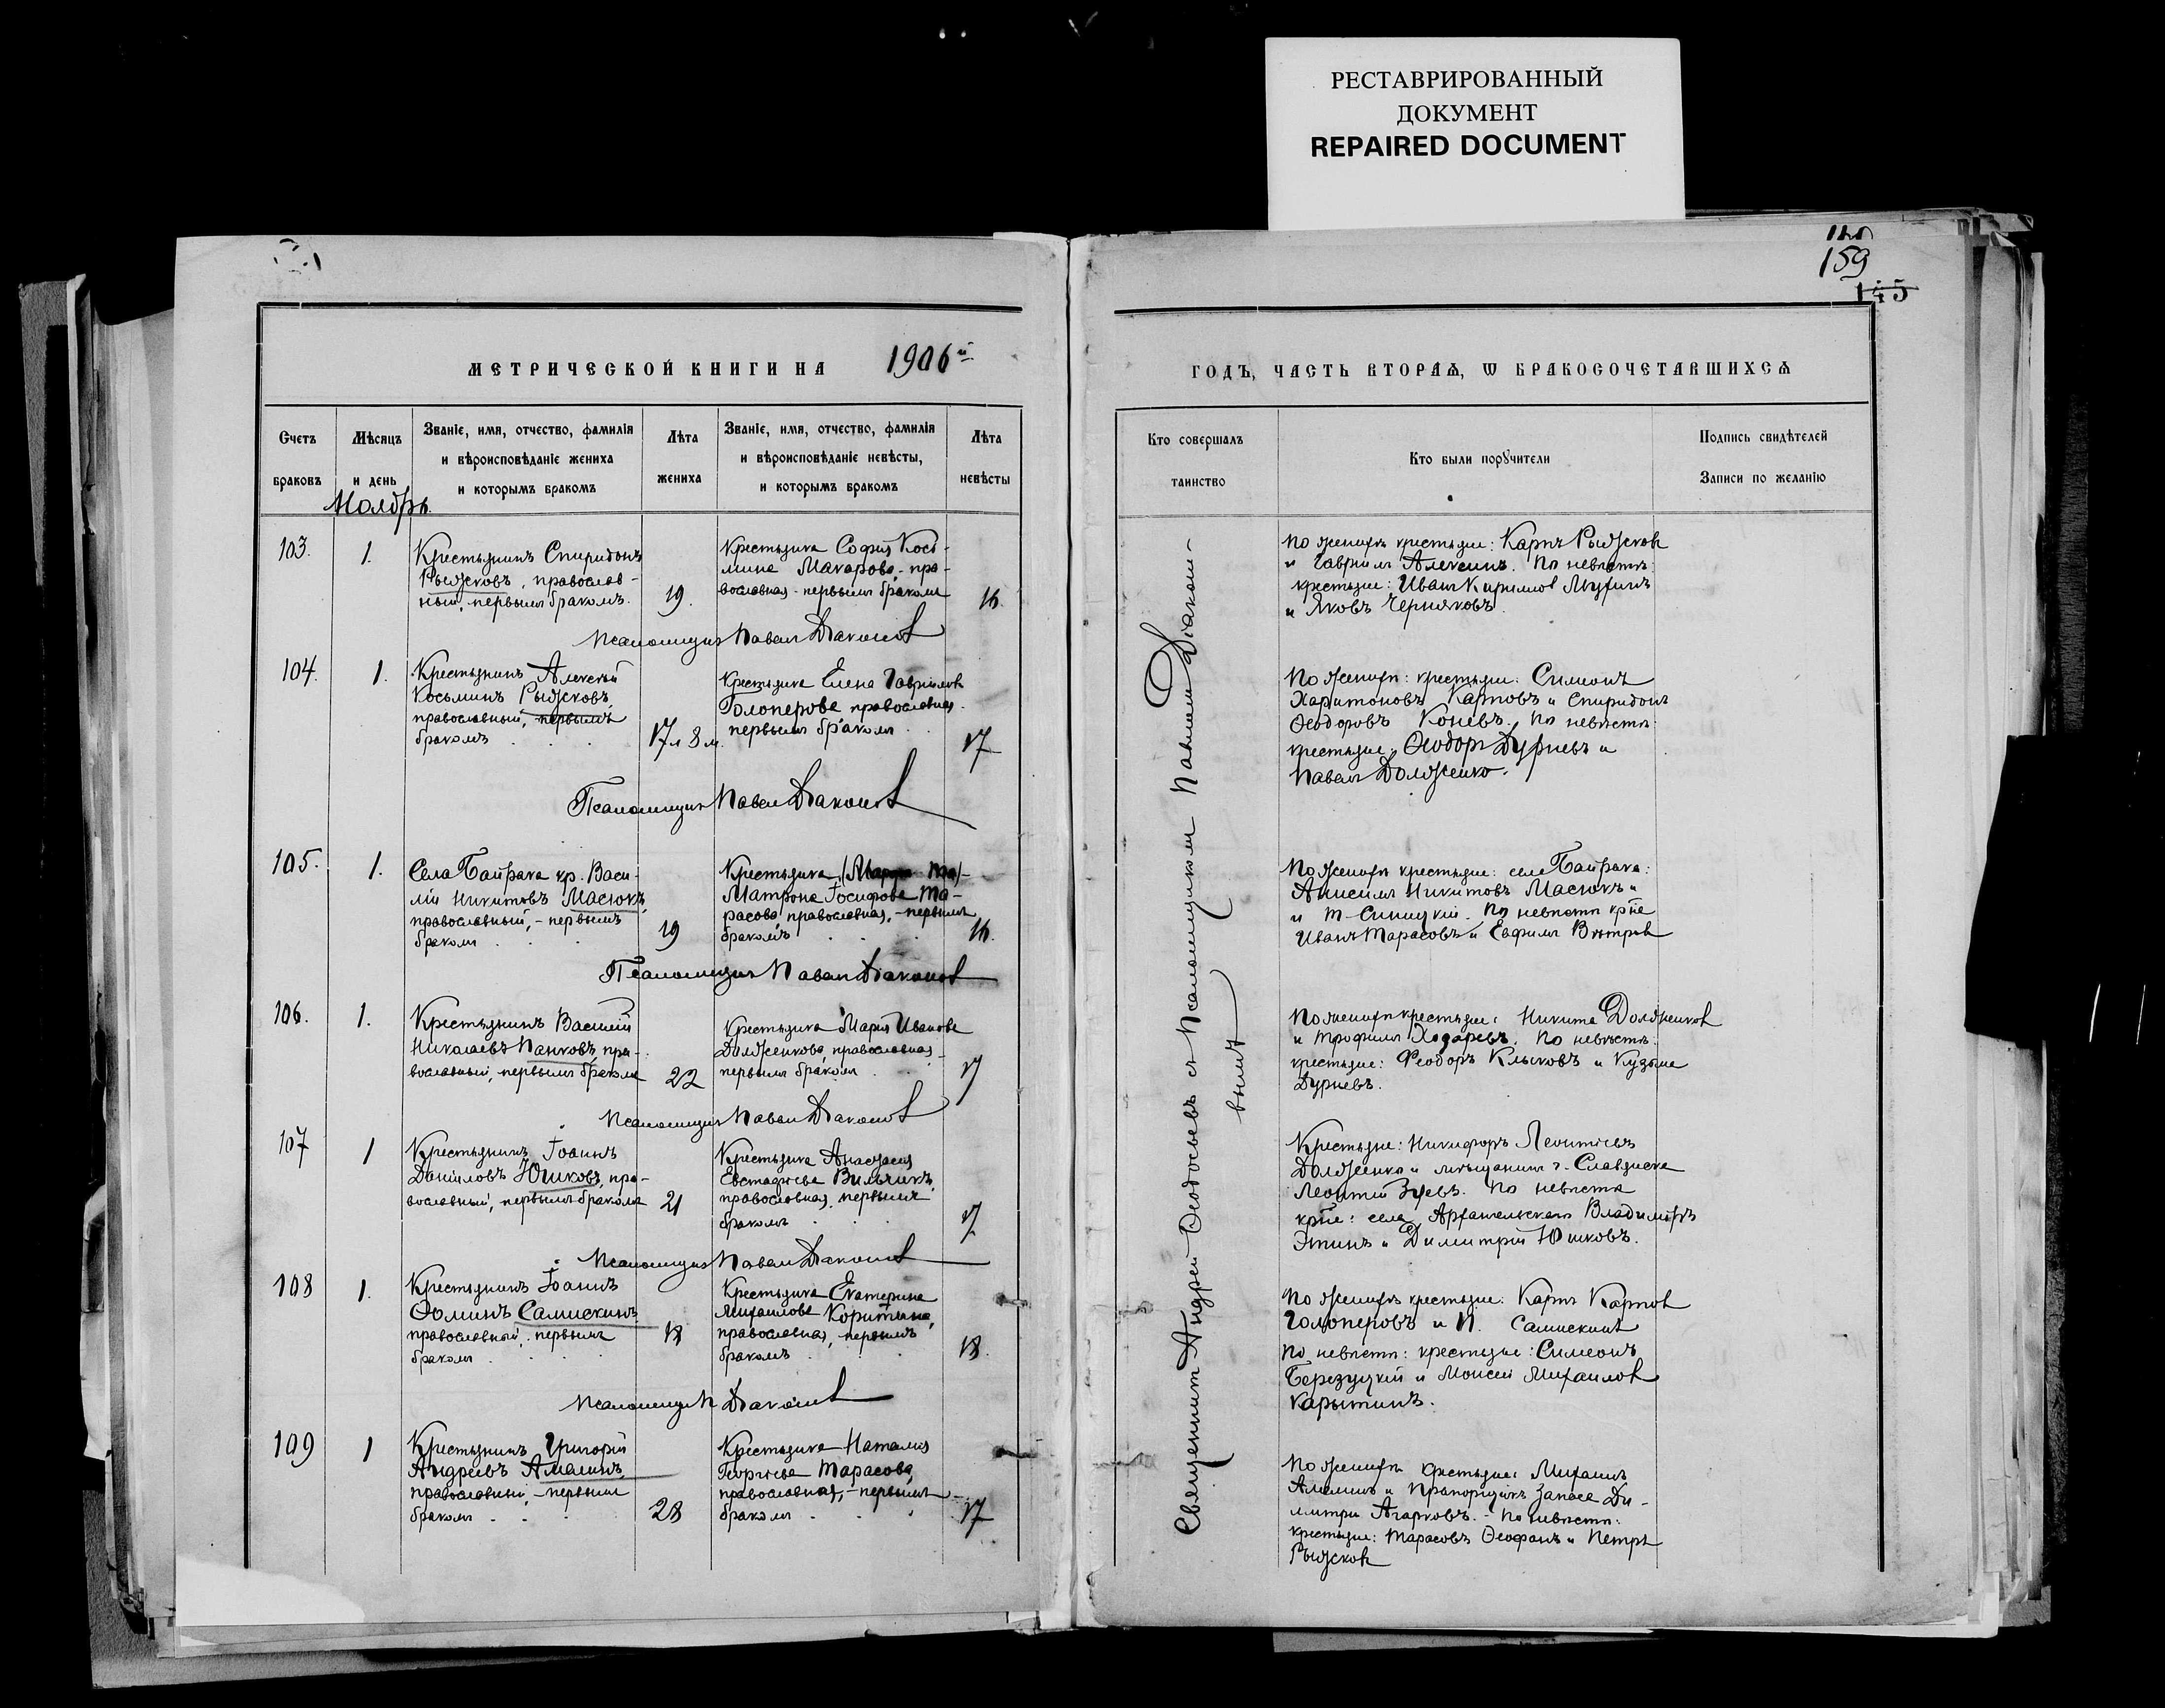 РЕСТАВРИРОВАННЫЙ
ДОКУМЕНТ
REPAIRED DOCUMENT
159
145
МЕТРИЧЕСКОЙ КНИГИ НА 1906й
ГОДЪ, ЧАСТЬ ВТОРАЯ, Ѡ БРАКОСОЧЕТАВШИХСЯ
Счетъ
браковъ
Мѣсяцъ
и день
Званіе, имя, отчество, фамилія
и вѣроисповѣданіе жениха
и которымъ бракомъ
Лѣта
жениха
Званіе, имя, отчество, фамилія
и вѣроисповѣданіе невѣсты,
и которымъ бракомъ
Лѣта
невѣсты
Кто совершалъ
таинство
Кто были поручители
Подпись свидѣтелей
Записи по желанію
Ноябрь
103.
1.
Крестьянинъ Спиридонъ
Рыжковъ, православ-
ный, первымъ бракомъ.
19.
Крестьянка Софія Кось-
мина Макарова, пра-
вославная - первымъ бракомъ
16.
По женихѣ крестьяне: Карпъ Рыжковъ
и Гавріилъ Алехинъ. По невѣстѣ:
крестьяне: Иванъ Кириллов
и Яковъ Черняковъ.
Псаломщикъ Павелъ Діаконов
104.
1.
Крестьянинъ Алексѣй
Косьминъ Рыжковъ,
православный, первымъ
бракомъ
17 л 8 м.
Крестьянка Елена Гаврилова
Голоперова православная
первымъ бракомъ
17
По женихѣ: крестьяне: Симеонъ
Харитоновъ Карповъ и Спиридонъ
Ѳеодоровъ Коневъ. По невѣстѣ:
крестьяне: Ѳеодоръ Дурневъ и
Павелъ Долженко.
Псаломщикъ Павелъ Діаконов
105.
1.
Села Байрака кр. Васи-
лій Никитовъ Масюкъ,
православный, - первымъ
бракомъ
19
Крестьянка
Матрона Іосифова Та-
расова, православная, - первымъ
бракомъ
16.
По женихѣ крестьяне: села Байрака:
Анисимъ Никитовъ Масюкъ и
и Т. Синицкій. По невѣстѣ кр-не
Иванъ Тарасовъ и Евфимъ Вѣтров
Псаломщикъ Павелъ Діаконов
106.
1.
Крестьянинъ Василій
Николаевъ Панковъ, пра-
вославный, первымъ бракомъ
22
Крестьянка Марія Иванова
Долженкова, православная
первымъ бракомъ
17
По женихѣ крестьяне: Никита Долженков
и Трофимъ Ходаревъ. По невѣстѣ:
крестьяне: Феодоръ Клыковъ и Кузьма
Дурневъ.
Псаломщикъ Павелъ Діаконов
107
1
Крестьянинъ Іоаннъ
Даніиловъ Юшковъ, пра-
вославный, первымъ бракомъ
21
Крестьянка Анастасія
Евстафіева Вильчикъ,
православная, первымъ
бракомъ
17
Крестьяне: Никифоръ Леонтіевъ
Долженко и мѣщанинъ г. Славянска
Леонтій Зуевъ. По невѣстѣ
кр-не: села Архангельскаго Владиміръ
Эпинъ и Димитрій Юшковъ.
Псаломщикъ Павелъ Діаконов
108
1.
Крестьянинъ Іоаннъ
Ѳоминъ Самискинъ
православный, первымъ
бракомъ
18
Крестьянка Екатерина
Михаилова Коритина,
православная, первымъ
бракомъ
18.
По женихѣ крестьяне: Карпъ Карпов
Голоперовъ и П. Самискинъ
По невѣстѣ: крестьяне: Симеонъ
Березуцкій и Моисей Михаилов
Карытинъ.
Псаломщикъ П Діаконов
109
1
Крестьянинъ Григорій
Андреевъ Амелинъ,
православный, - первымъ
бракомъ
28
Крестьянка Наталія
Георгіева Тарасова,
православная, - первымъ
бракомъ
17
По женихѣ крестьяне: Михаилъ
Амелинъ и Прапорщикъ запаса Ди-
митрій Агарковъ. - По невѣстѣ:
крестьяне: Тарасовъ Ѳеофанъ и Петръ
Рыжков
Священникъ Андрей Ѳеодосьевъ съ Псаломщикомъ Павломъ Діаконо-
вымъ